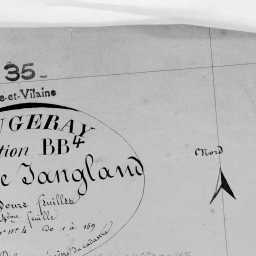 35
e-et-Vilaine
UGERAY
tion BB4
e Tangland
Douze feuilles
4ème feuille
n° 4 De 1 à 169
Nord